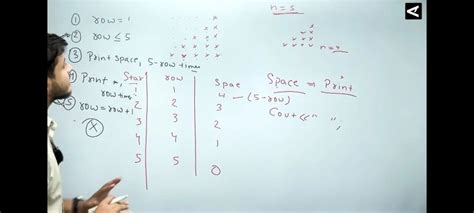 ① row = 1
② row ≤ 5
③ Print space, 5-row times
Print *, row time
⑤ row = row+1
X
n = 5
n = 4
Star row Spae
1 1 4 — (5-row)
2 2 3
3 3 2
4 4 1
5 5 0
Space → Print
Cout << " ";
A